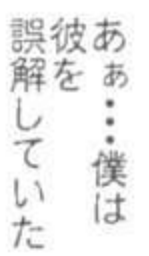 あぁ・・・僕は
彼を
誤解していた